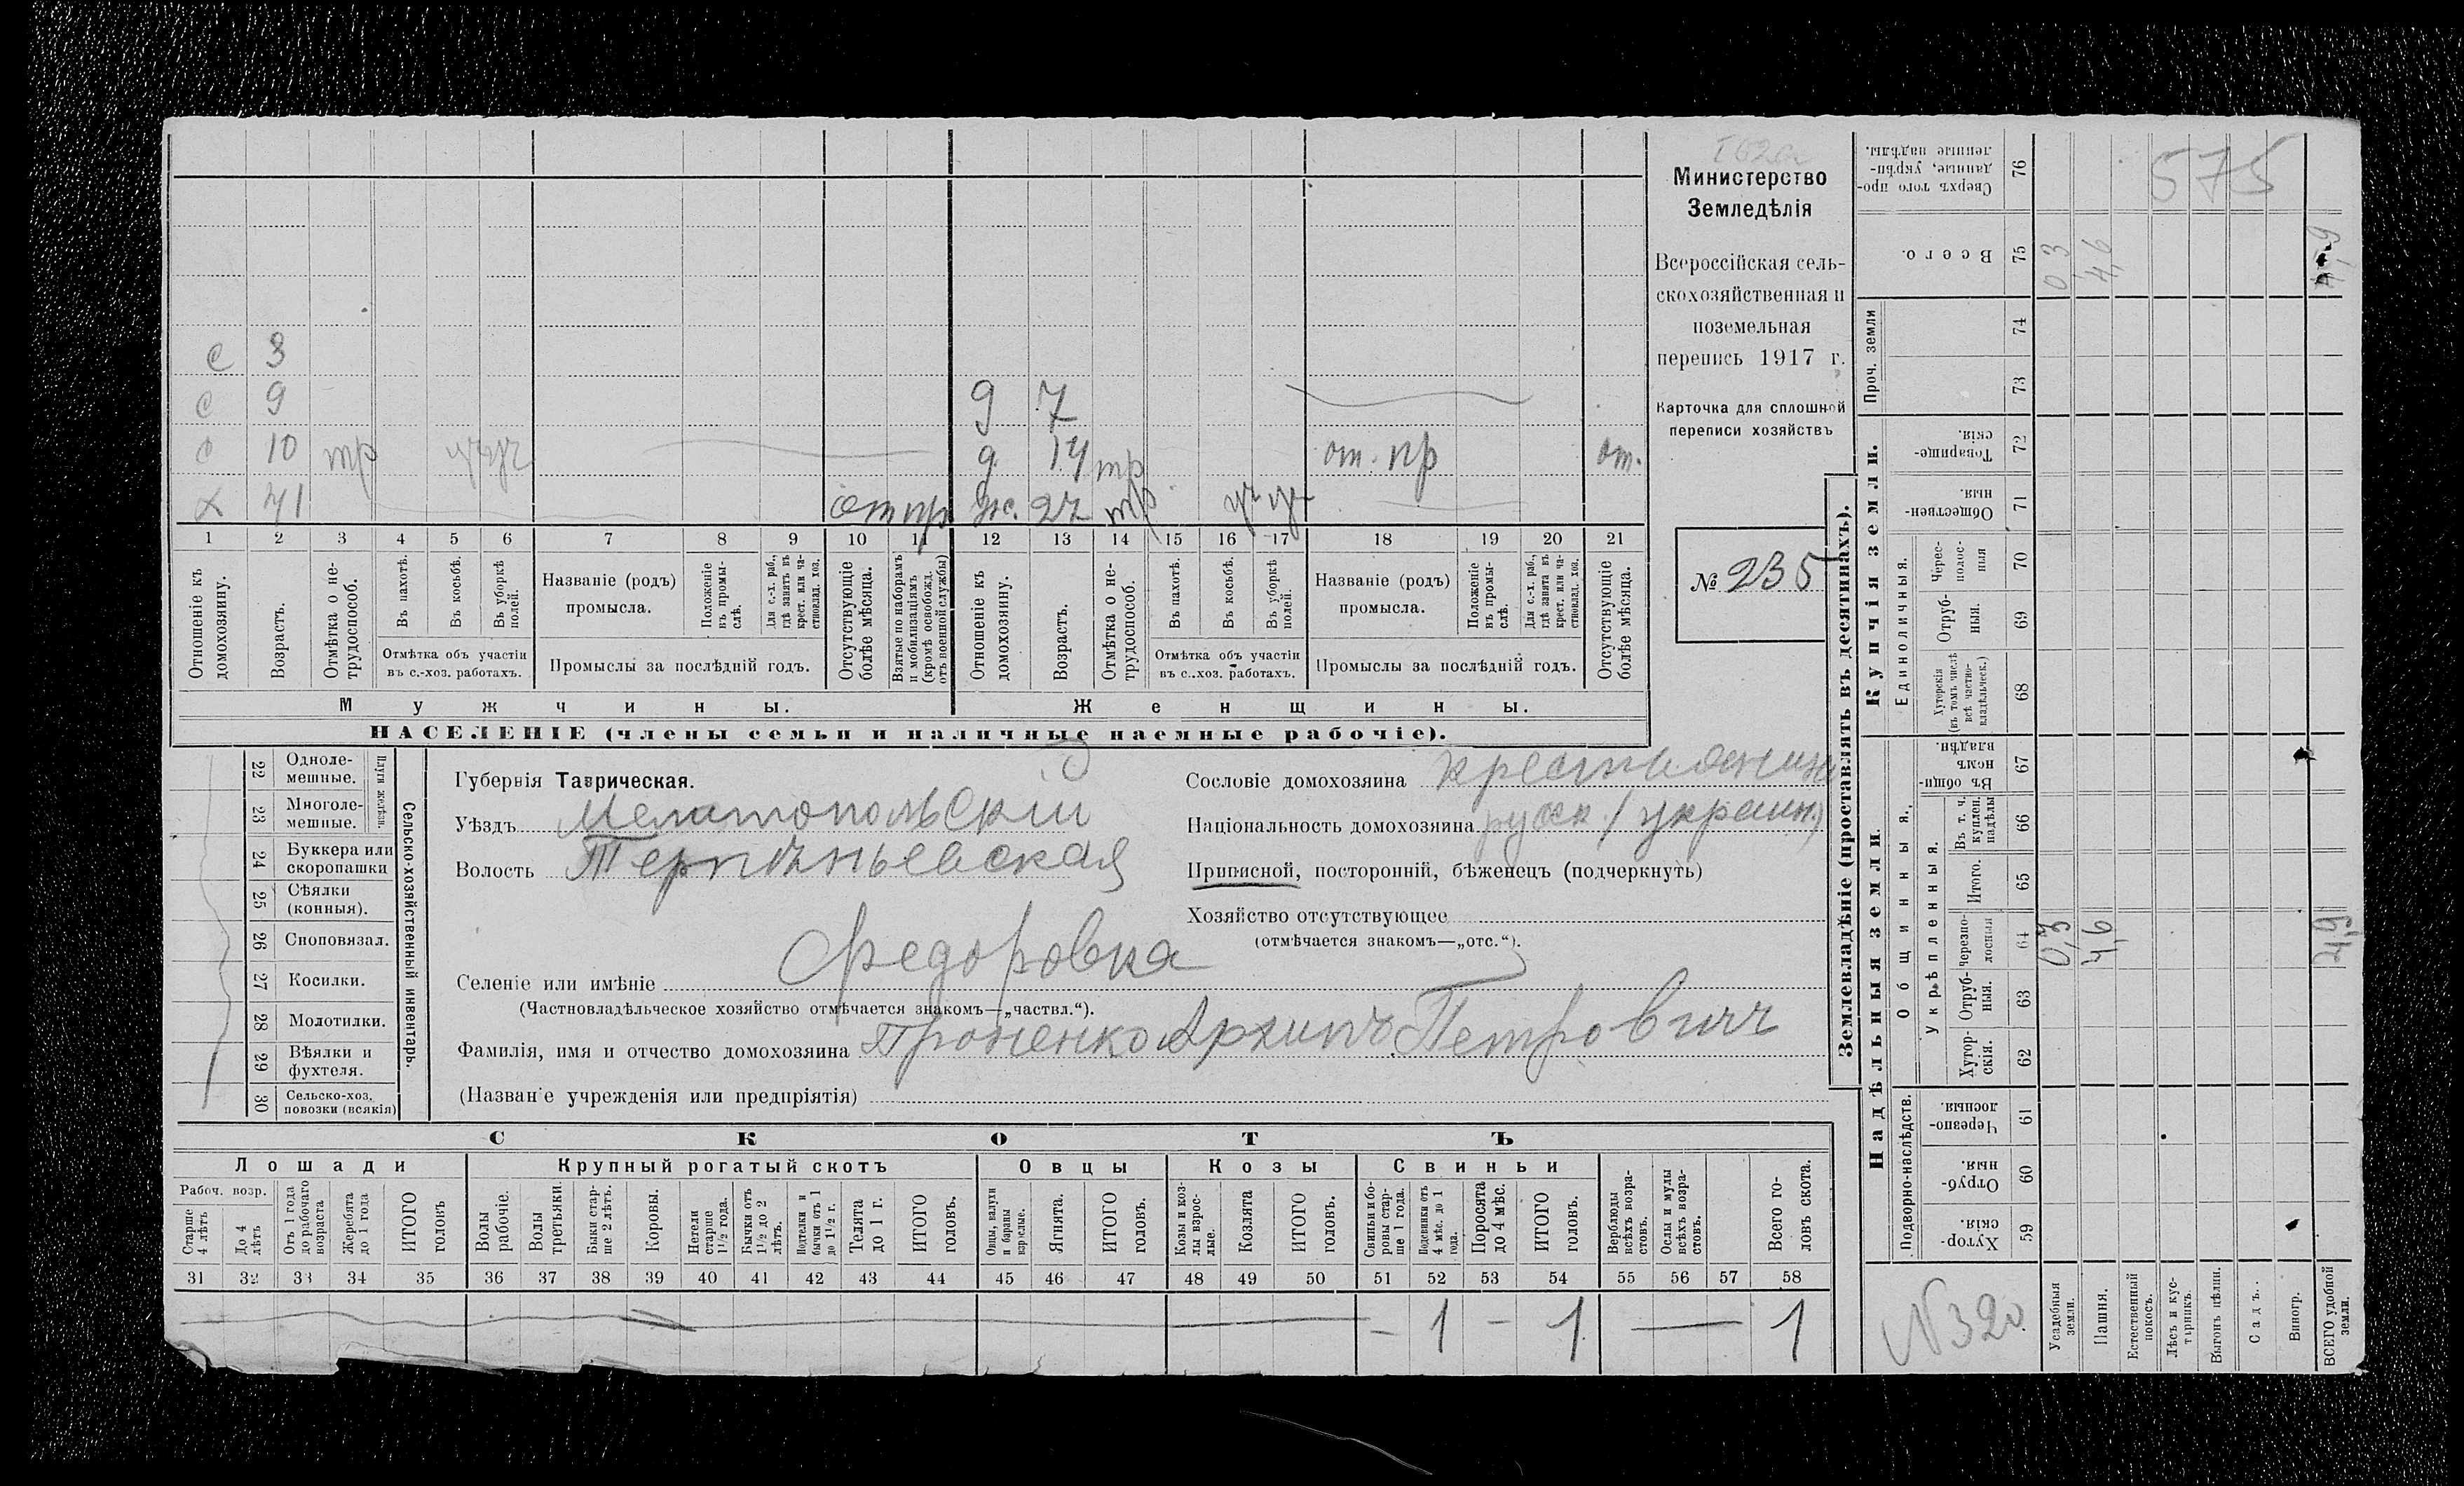 Министерство
Земледѣлія
Всероссійская сель-
скохозяйственная и
поземельная
перепись 1917 г.
Карточка для сплошной
переписи хозяйствъ
№ 235
с 3
с 9 д 7
с 10 тр д. 14 тр от. пр от.
х 41 от пр ж. тр
1 2 3 4 5 6 7 8 9 10 11 12 13 14 15 16 17 18 19 20 21
Отношеніе къ домохозяину.
Возрастъ.
Отмѣтка о не-трудоспособ.
Въ пахотѣ.
Въ косьбѣ.
Въ уборкѣ полей.
Отмѣтка объ участіи
въ с.-хоз. работахъ.
Названіе (родъ)
промысла.
Положеніе въ промы-слѣ.
Для с.-х. раб., гдѣ занятъ въ крест. или ча-стновлад. хоз.
Промыслы за послѣдній годъ.
Отсутствующіе болѣе мѣсяца.
Взятые по наборамъ и мобилизаціямъ (кромѣ освобожд. отъ военной службы)
Отношеніе къ домохозяину.
Возрастъ.
Отмѣтка о не-трудоспособ.
Въ пахотѣ.
Въ косьбѣ.
Въ уборкѣ полей.
Отмѣтка объ участіи
въ с.-хоз. работахъ.
Названіе (родъ)
промысла.
Положеніе въ промы-слѣ.
Для с.-х. раб., гдѣ занята въ крест. или ча-стновлад. хоз.
Промыслы за послѣдній годъ.
Отсутствующіе болѣе мѣсяца.
Мужчины. Женщины.
НАСЕЛЕНІЕ (члены семьи и наличные наемные рабочіе).
22 Одноле-мешные.
23 Многоле-мешные.
Плуги желѣзн.
24 Буккера или скоропашки
25 Сѣялки (конныя).
26 Сноповязал.
27 Косилки.
28 Молотилки.
29 Вѣялки и фухтеля.
30 Сельско-хоз. повозки (всякія)
Сельско-хозяйственный инвентарь.
Губернія Таврическая.
Уѣздъ Мелитопольскій
Волость Терпѣньевская
Селеніе или имѣніе Федоровка
(Частновладѣльческое хозяйство отмѣчается знакомъ—„частвл.“).
Фамилія, имя и отчество домохозяина Проненко Архипъ Петровичъ
(Названіе учрежденія или предпріятія)
Сословіе домохозяина крестьянинъ
Національность домохозяина русск. (украин.)
Приписной, посторонній, бѣженецъ (подчеркнуть)
Хозяйство отсутствующее
(отмѣчается знакомъ—„отс.“).
СКОТЪ
Лошади Крупный рогатый скотъ Овцы Козы Свиньи
Рабоч. возр.
Старше 4 лѣтъ
До 4 лѣтъ
Отъ 1 года до рабочаго возраста
Жеребята до 1 года
ИТОГО головъ
Волы рабочіе.
Волы третьяки.
Быки стар-ше 2 лѣтъ.
Коровы.
Нетели старше 1½ года.
Бычки отъ 1½ до 2 лѣтъ.
Подтелки и бычки отъ 1 до 1½ г.
Телята до 1 г.
ИТОГО головъ.
Овцы, валухи и бараны взрослые.
Ягнята.
ИТОГО головъ.
Козы и коз-лы взрос-лые.
Козлята
ИТОГО головъ.
Свиньи и бо-ровы стар-ше 1 года.
Подсвинки отъ 4 мѣс. до 1 года.
Поросята до 4 мѣс.
ИТОГО головъ.
Верблюды всѣхъ возра-стовъ.
Ослы и мулы всѣхъ возра-стовъ.
Всего го-ловъ скота.
31 32 33 34 35 36 37 38 39 40 41 42 43 44 45 46 47 48 49 50 51 52 53 54 55 56 57 58
— 1 — 1 — 1
Землевладѣніе (проставлять въ десятинахъ).
Надѣльныя земли. Купчія земли. Проч. земли
Подворно-наслѣдств.
Общинныя.
Укрѣпленныя.
Единоличныя.
Хутор-скія. 59
Отруб-ныя. 60
Черезпо-лосныя. 61
Хутор-скія. 62
Отруб-ныя. 63
Черезпо-лосныя 64
Итого. 65
Въ т. ч. куплен. надѣлы 66
Въ общи-номъ владѣн. 67
Хуторскія (въ томъ числѣ всѣ частно-владѣльческ.) 68
Отруб-ныя. 69
Черес-полос-ныя 70
Обществен-ныя. 71
Товарище-скія. 72
73
74
Всего. 75
Сверхъ того про-данные, укрѣп-ленные надѣлы. 76
Усадебныя земли. 0,3 0 3
Пашня. 4,6 4,6
Естественный покосъ.
Лѣсъ и кус-тарникъ.
Выгонъ цѣлин.
Садъ.
Виногр.
ВСЕГО удобной земли. 4,9 4,9
575
№320